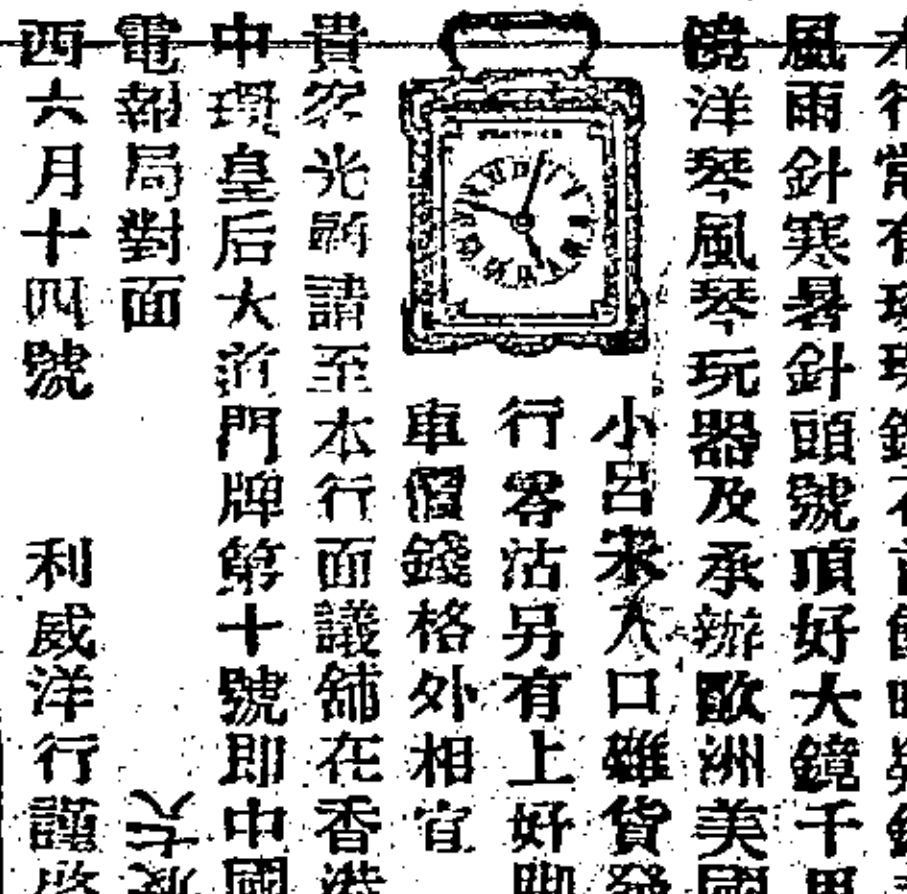 風雨針寒暑針頭號頂好大鏡千里
鏡洋琴風琴玩器及承辦歐洲美國
小呂宋入口雜貨發
行零沽另有上好脚
車價錢格外相宜
貴客光顧請至本行面議舖在香港
中環皇后大道門牌第十號即中國
電報局對面
西六月十四號 利威洋行謹啓